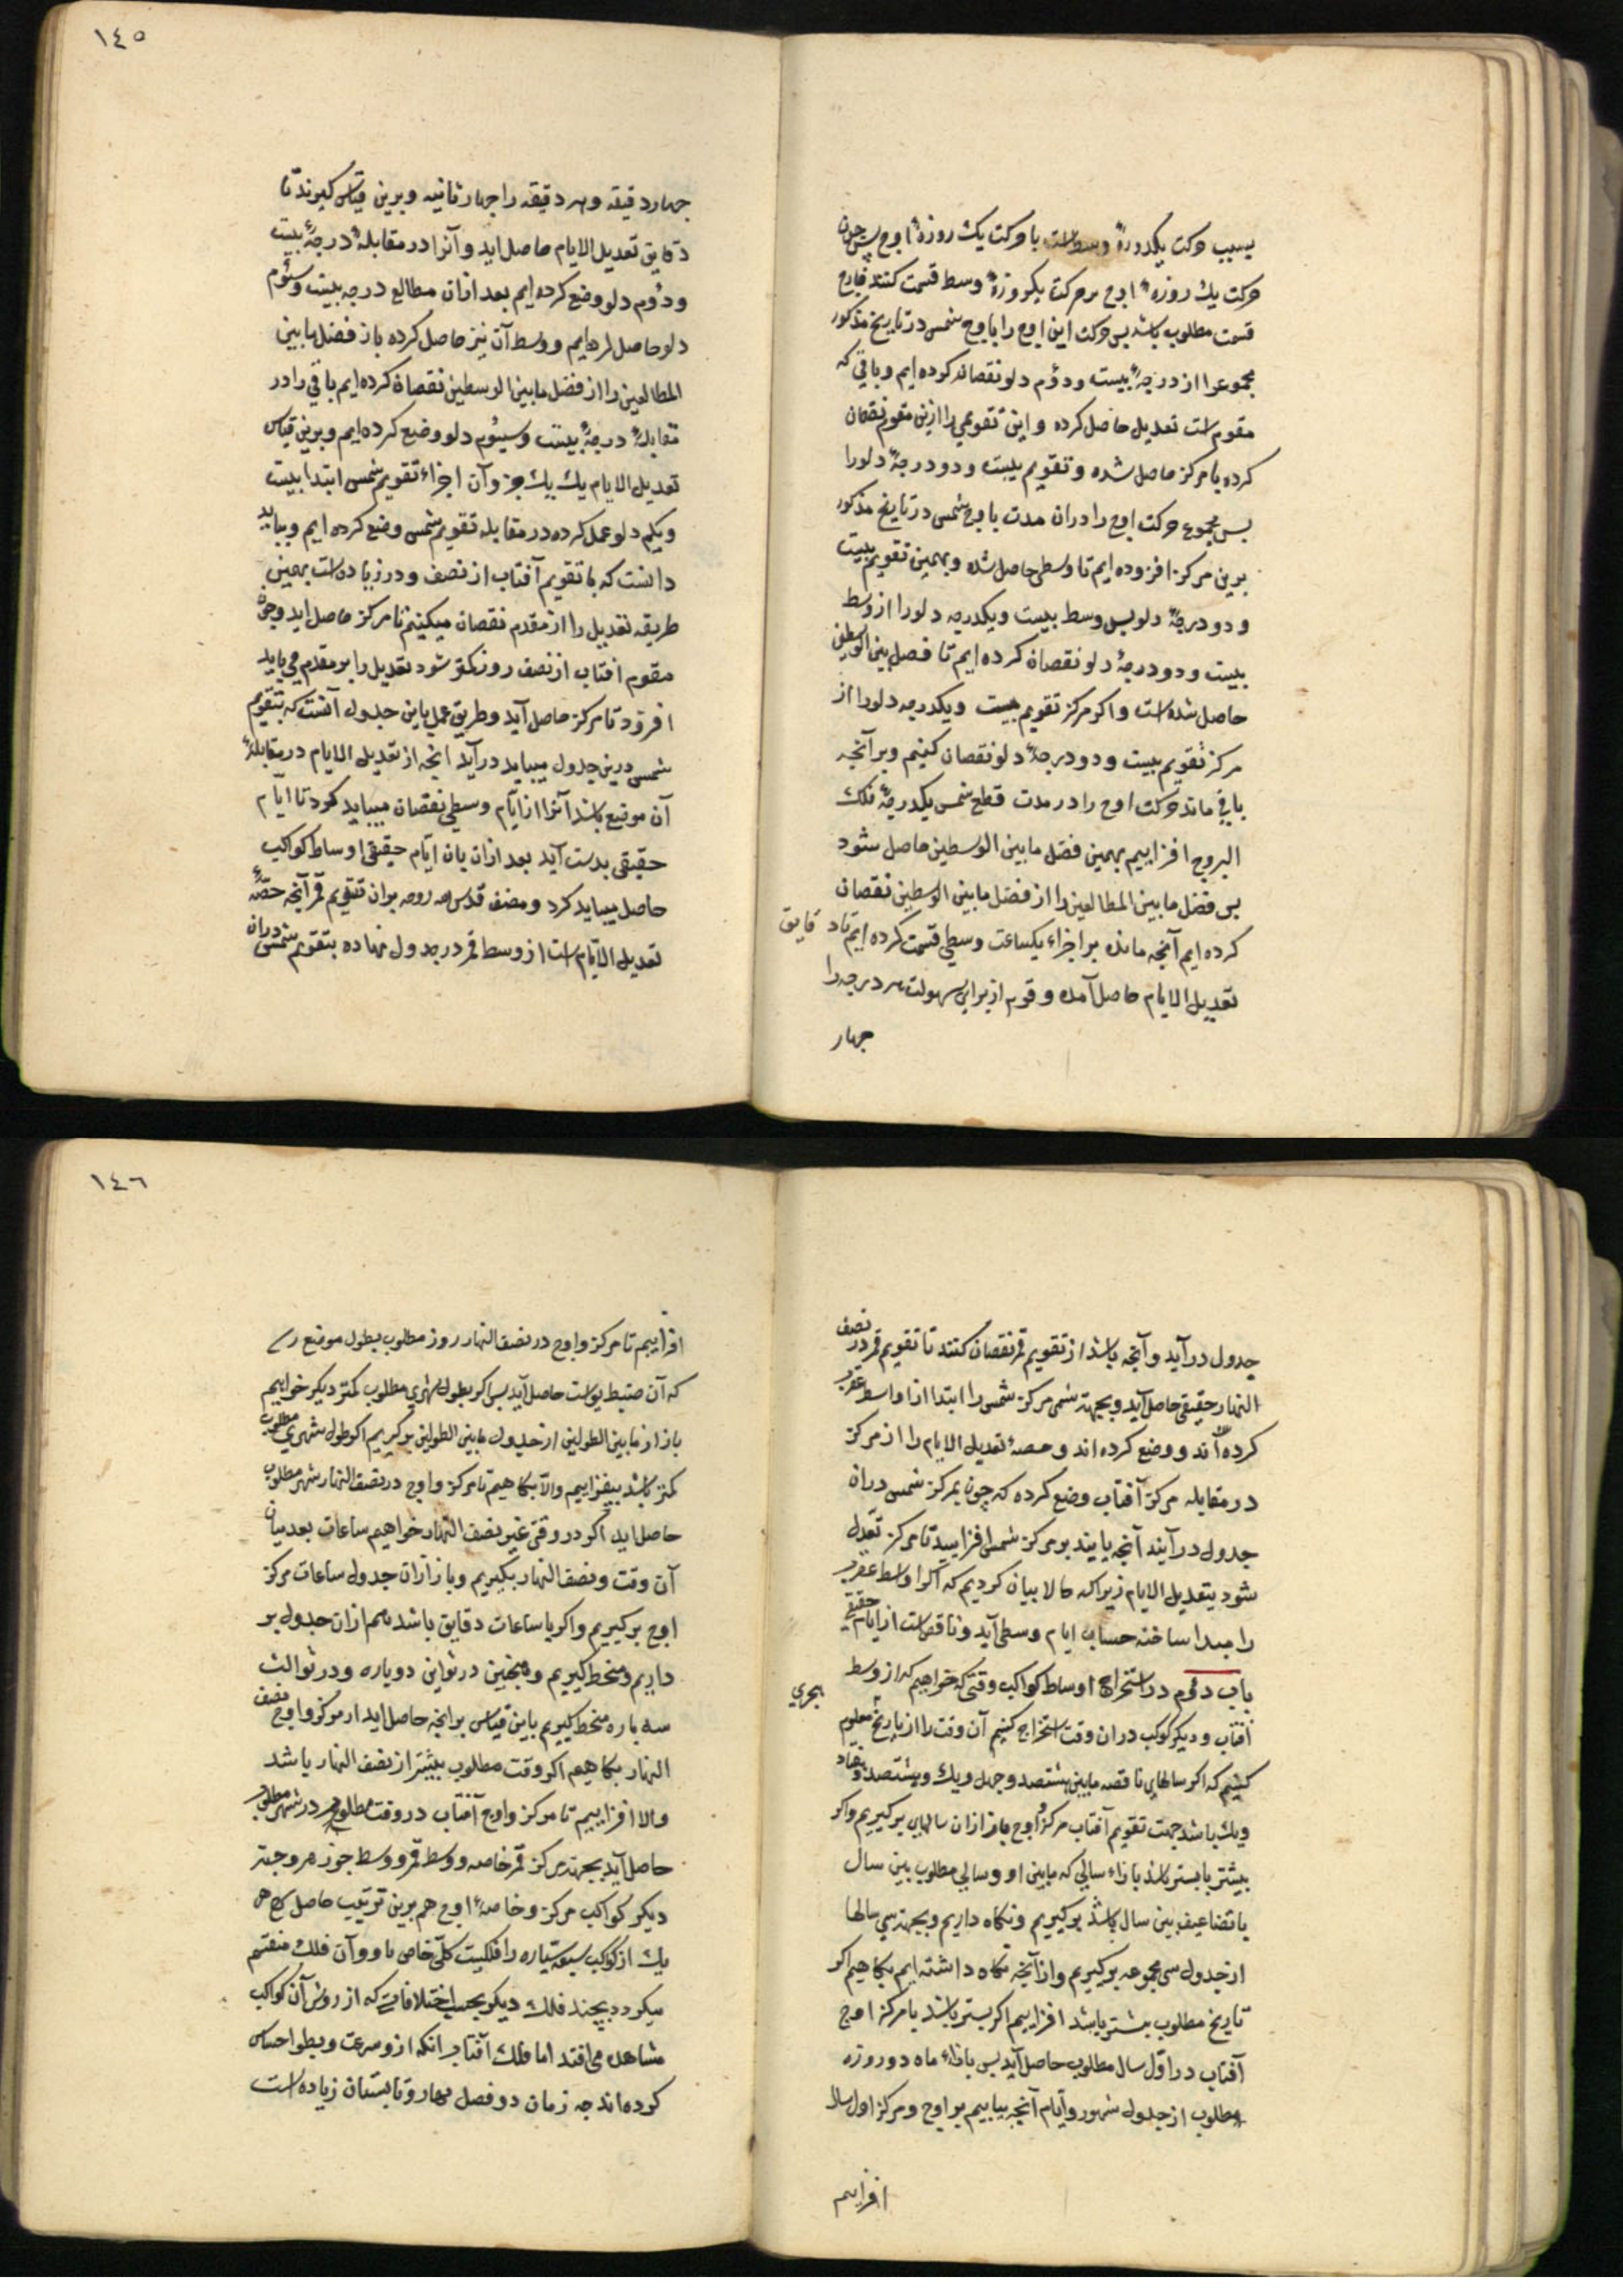 بسبب حرکت یکدورهٔ وسط است با حرکت یک روزهٔ اوج پس چون
حرکت یک روزهٔ اوج بر حرکت یکروزهٔ وسط قسمت کنند خارج
قسمت مطلوب باشد پس حرکت این اوج را با وج شمس در تاریخ مذکور
مجموعرا از درجهٔ بیست ودؤم دلو نقصان کرده ایم و باقی که
مقوم است تعدیل حاصل کرده و این تقویمی را ازین مقوم نقصان
کرده با مرکز حاصل شده و تقویم بیست و دو درجهٔ دلو را
پس مجموع حرکت اوج را دران مدت با وج شمس در تاریخ مذکور
برین مرکز افزوده ایم تا وسطی حاصل شد و بهمین تقویم بیست
و دو درجهٔ دلو پس وسط بیست و یکدرجه دلو را از وسط
بیست و دو درجهٔ دلو نقصان کرده ایم تا فضل بین الوسطین
حاصل شده است و اکر مرکز تقویم بیست و یکدرجه دلو را از
مرکز تقویم بیست و دو درجهٔ دلو نقصان کنیم و بر آنچه
باقی ماند حرکت اوج را در مدت قطع شمس یکدرجهٔ فلک
البروج افزاییم بهمین فضل مابین الوسطین حاصل شود
پس فضل مابین المطالعین را از فضل مابین الوسطین نقصان
کرده ایم آنچه مانده بر اجزاء یکساعت وسطی قسمت کرده ایم تا دقایق
تعدیل الایام حاصل آمده و قوم از برای سهولت هر درجه را
چهار
١٤٥
چهار دقیقه وهر دقیقه را چهار ثانیه و برین قیاس کیرند تا
دقایق تعدیل الایام حاصل اید و آنرا در مقابلهٔ درجهٔ بیست
ودؤم دلو وضع کرده ایم بعد ازان مطالع درجه بیست وسئوم
دلو حاصل کرده ایم و وسط آن نیز حاصل کرده باز فضل مابین
المطالعین را از فضل مابین الوسطین نقصان کرده ایم باقی را در
مقابلهٔ درجهٔ بیست وسیئوم دلو وضع کرده ایم و برین قیاس
تعدیل الایام یک بیک جزو آن اجزاء تقویم شمس ابتدا بیست
ویکم دلو عمل کرده در مقابله تقویم شمس وضع کرده ایم و بباید
دانست که با تقویم آفتاب از نصف و در زیاده است بهمین
طریقه تعدیل را از مقدم نقصان میکنیم تا مرکز حاصل اید و چون
مقوم افتاب از نصف روز کمتر شود تعدیل را بر مقدم می باید
افزود تا مرکز حاصل آید و طریق عمل باین جدول آنست که بتقویم
شمس درین جدول میباید درآید انچه از تعدیل الایام در مقابلهٔ
آن موقع باشد آنرا از ایّام وسطی نقصان میباید کرد تا ایّام
حقیقی بدست آید بعد ازان بان ایّام حقیقی اوساط کواکب
حاصل میباید کرد و مصنف قدس الله روحه بران تقویم قمر آنچه حصّهٔ
تعدیل الایّام است از وسط قمر در جدول نهاده بتقویم شمس دران
جدول درآید و آنچه باشد از تقویم قمر نقصان کنند تا تقویم قمر در نصف
النهار حقیقی حاصل آید و بجهت شمس مرکز شمس را ابتدا از اواسط عقرب
کرده اند و وضع کرده اند و حصهٔ تعدیل الایام را از مرکز
در مقابله مرکز آفتاب وضع کرده که چون بمرکز شمس دران
جدول درآیند آنچه یابند بر مرکز شمس افزایید تا مرکز تعدل
شود بتعدیل الایام زیرا که حالا بیان کردیم که اکر اواسط عقرب
را مبدا ساخته حساب ایام وسطی آید و ناقص است از ایام حقیقی
باب دؤم در استخراج اوساط کواکب وقتی که خواهیم که از وسط
آفتاب و دیکر کوکب دران وقت استخراج کنیم آن وقت را از تاریخ معلوم هجری
کنیم که اکر سالهای ناقصه مابین هشتصد و چهل ویک و هشتصد وهفتاد
ویک باشد جهت تقویم آفتاب مرکز و اوج بازا ازان سالهای برکیریم واکر
بیشتر یا بستر باشد بازاء سالی که مابین او و سالی مطلوب بین سال
یا تضاعیف بین سال باشد برکیریم و نکاه داریم و بجهت سی سالها
از جدول سی مجموعه برکیریم و از آنچه نکاه داشته ایم بکاهیم اکر
تاریخ مطلوب بیشتر باشد افزاییم اکر بستر باشد یا مرکز اوج
آفتاب در اوّل سال مطلوب حاصل آید پس بازاء ماه دو روزه
مطلوب از جدول شهور و آیّام آنچه بیابیم بر اوج و مرکز اول سال
افزاییم
١٤٦
افزاییم تا مرکز و اوج در نصف النهار روز مطلوب بطول موضع
که آن ضبط یواست حاصل آید پس اکر بطول شهری مطلوب کمتر دیکر خواهیم
باز از مابین الطولین از جدول مابین الطولین برکیریم اکر طول شهری مطلوب
کمتر باشد بیفزاییم والا بکاهیم تا مرکز و اوج در نصف النهار شهر مطلوب
حاصل اید اکر در وقتی غیر نصف النهار خواهیم ساعات بعد میان
آن وقت و نصف النهار بکیریم و بازاء آن جدول ساعات مرکز
اوج برکیریم واکر با ساعات دقایق باشد هم ازان جدول بر
داریم و منحط کیریم و همچنین در ثوانی دوباره و در ثوالث
سه باره منحط کیریم باین قیاس برانچه حاصل اید از مرکز و اوج نصف
النهار بکاهیم اکر وقت مطلوب بیشتر از نصف النهار باشد
والا افزاییم تا مرکز و اوج آفتاب در وقت مطلوب در شهر مطلوب
حاصل آید بجهت مرکز قمر خاصه و وسط قمر و وسط جوزهر وجهت
دیکر کواکب مرکز و خاصهٔ اوج هم برین ترتیب حاصل
یک از کوکب سبعه سیّاره را فلکیست کلّی خاص با و و آن فلک منقسم
میکردد بچند فلک دیکر بحسب اختلافات که از روش آن کواکب
مشاهده می افتد اما فلک آفتاب برانکه از و سرعت و بطو احساس
کرده اند چه زمان دو فصل بهار و تابستان زیاده است